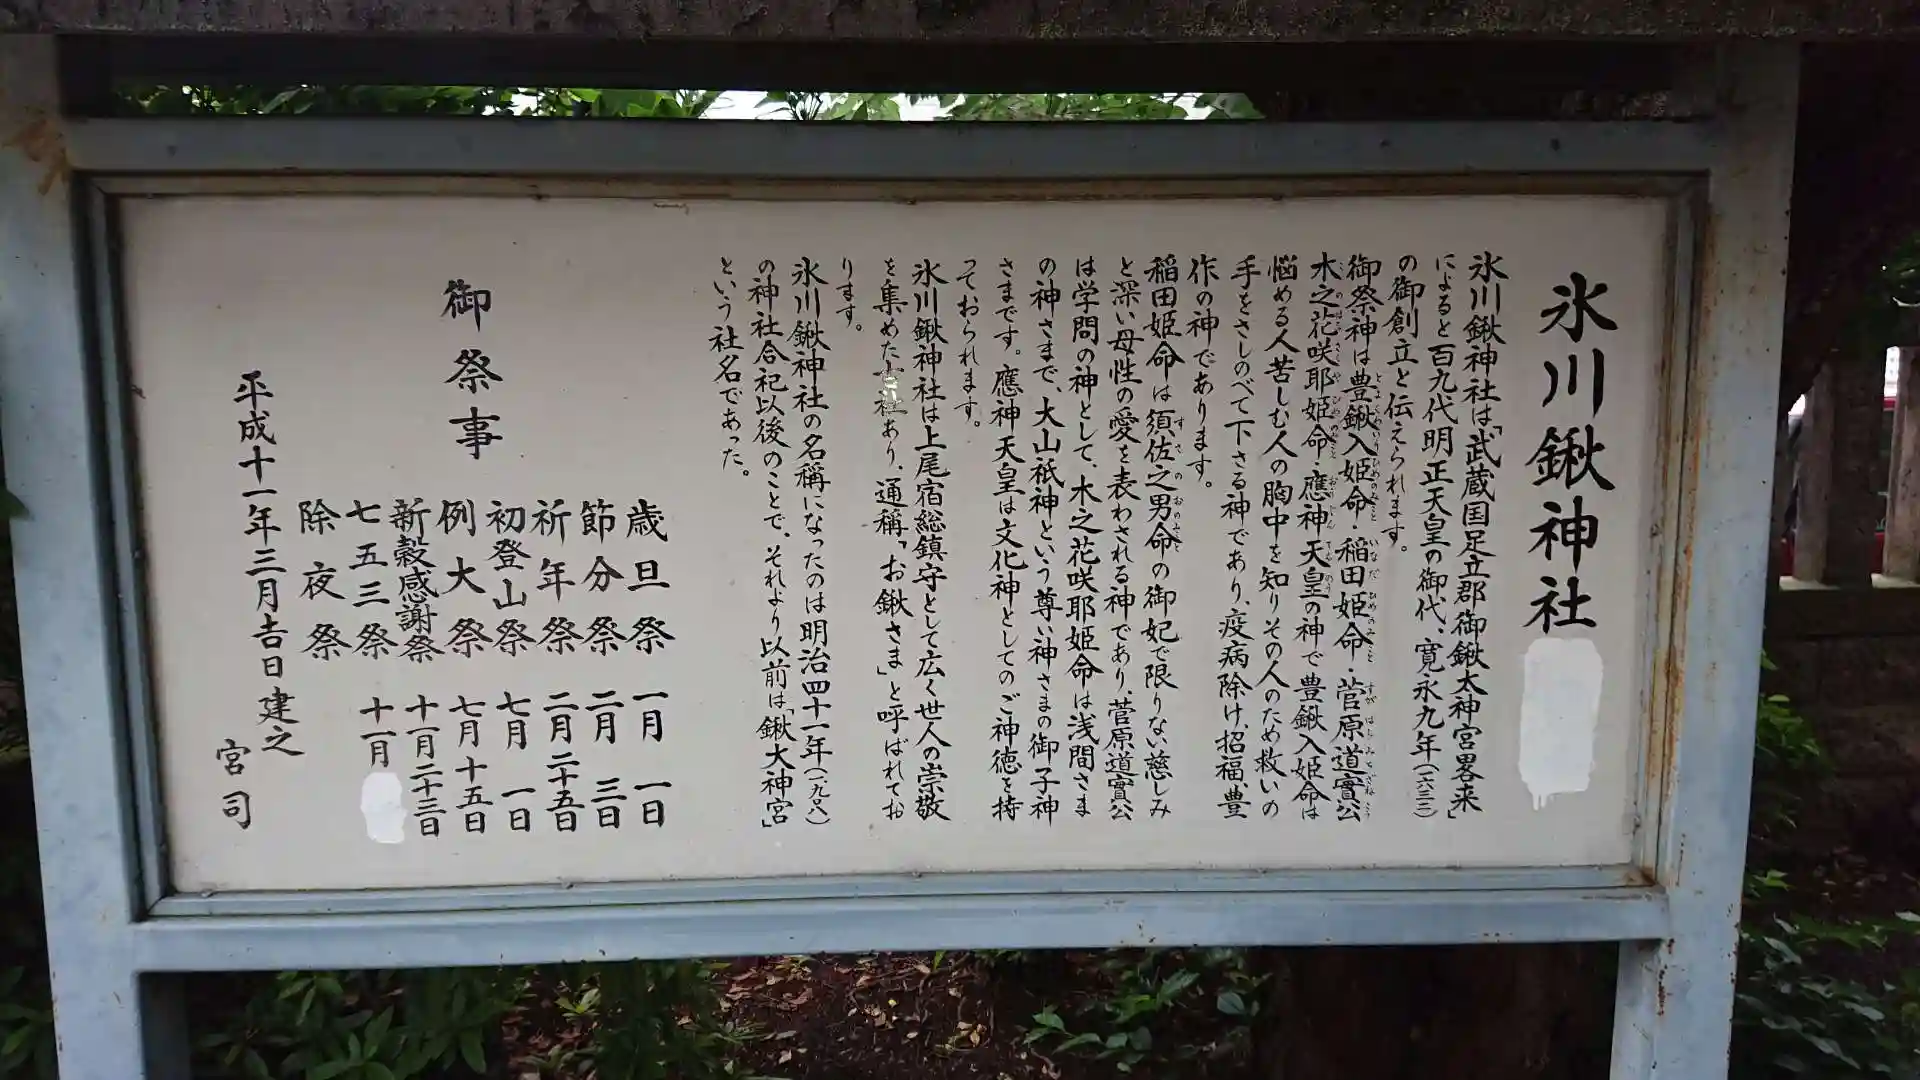 氷川鍬神社
氷川鍬神社は「武蔵国足立郡御鍬太神宮畧来」
によると百九代明正天皇の御代、寛永九年(一六三二)
の御創立と伝えられます。
御祭神は豊鍬入姫命・稲田姫命・菅原道實公
木之花咲耶姫命・應神天皇の神で豊鍬入姫命は
悩める人苦しむ人の胸中を知りその人のため救いの
手をさしのべて下さる神であり、疫病除け、招福、豊
作の神であります。
稲田姫命は須佐之男命の御妃で限りない慈しみ
と深い母性の愛を表わされる神であり、菅原道實公
は学問の神として、木之花咲耶姫命は浅間さま
の神さまで、大山祇神という尊い神さまの御子神
さまです。應神天皇は文化神としてのご神徳を持
っておられます。
氷川鍬神社は上尾宿総鎮守として広く世人の崇敬
を集めた古社あり、通稱「お鍬さま」と呼ばれてお
ります。
氷川鍬神社の名稱になったのは明治四十一年(一九〇八)
の神社合祀以後のことで、それより以前は「鍬大神宮」
という社名であった。
御祭事
歳旦祭 一月 一日
節分祭 二月 三日
祈年祭 二月二十五日
初登山祭 七月 一日
例大祭 七月十五日
新穀感謝祭 十一月二十三日
七五三祭 十一月
除夜祭
平成十一年三月吉日建之
宮司